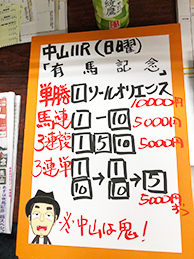 中山11R(日曜)
「有馬記念」
単勝 1 ソールオリエンス
10000円
馬連 1 ー 10 5000円
3連複 1 5 10 5000円
3連単 1 10 → 1 10 → 5
5000円ずつ
※中山は鬼!